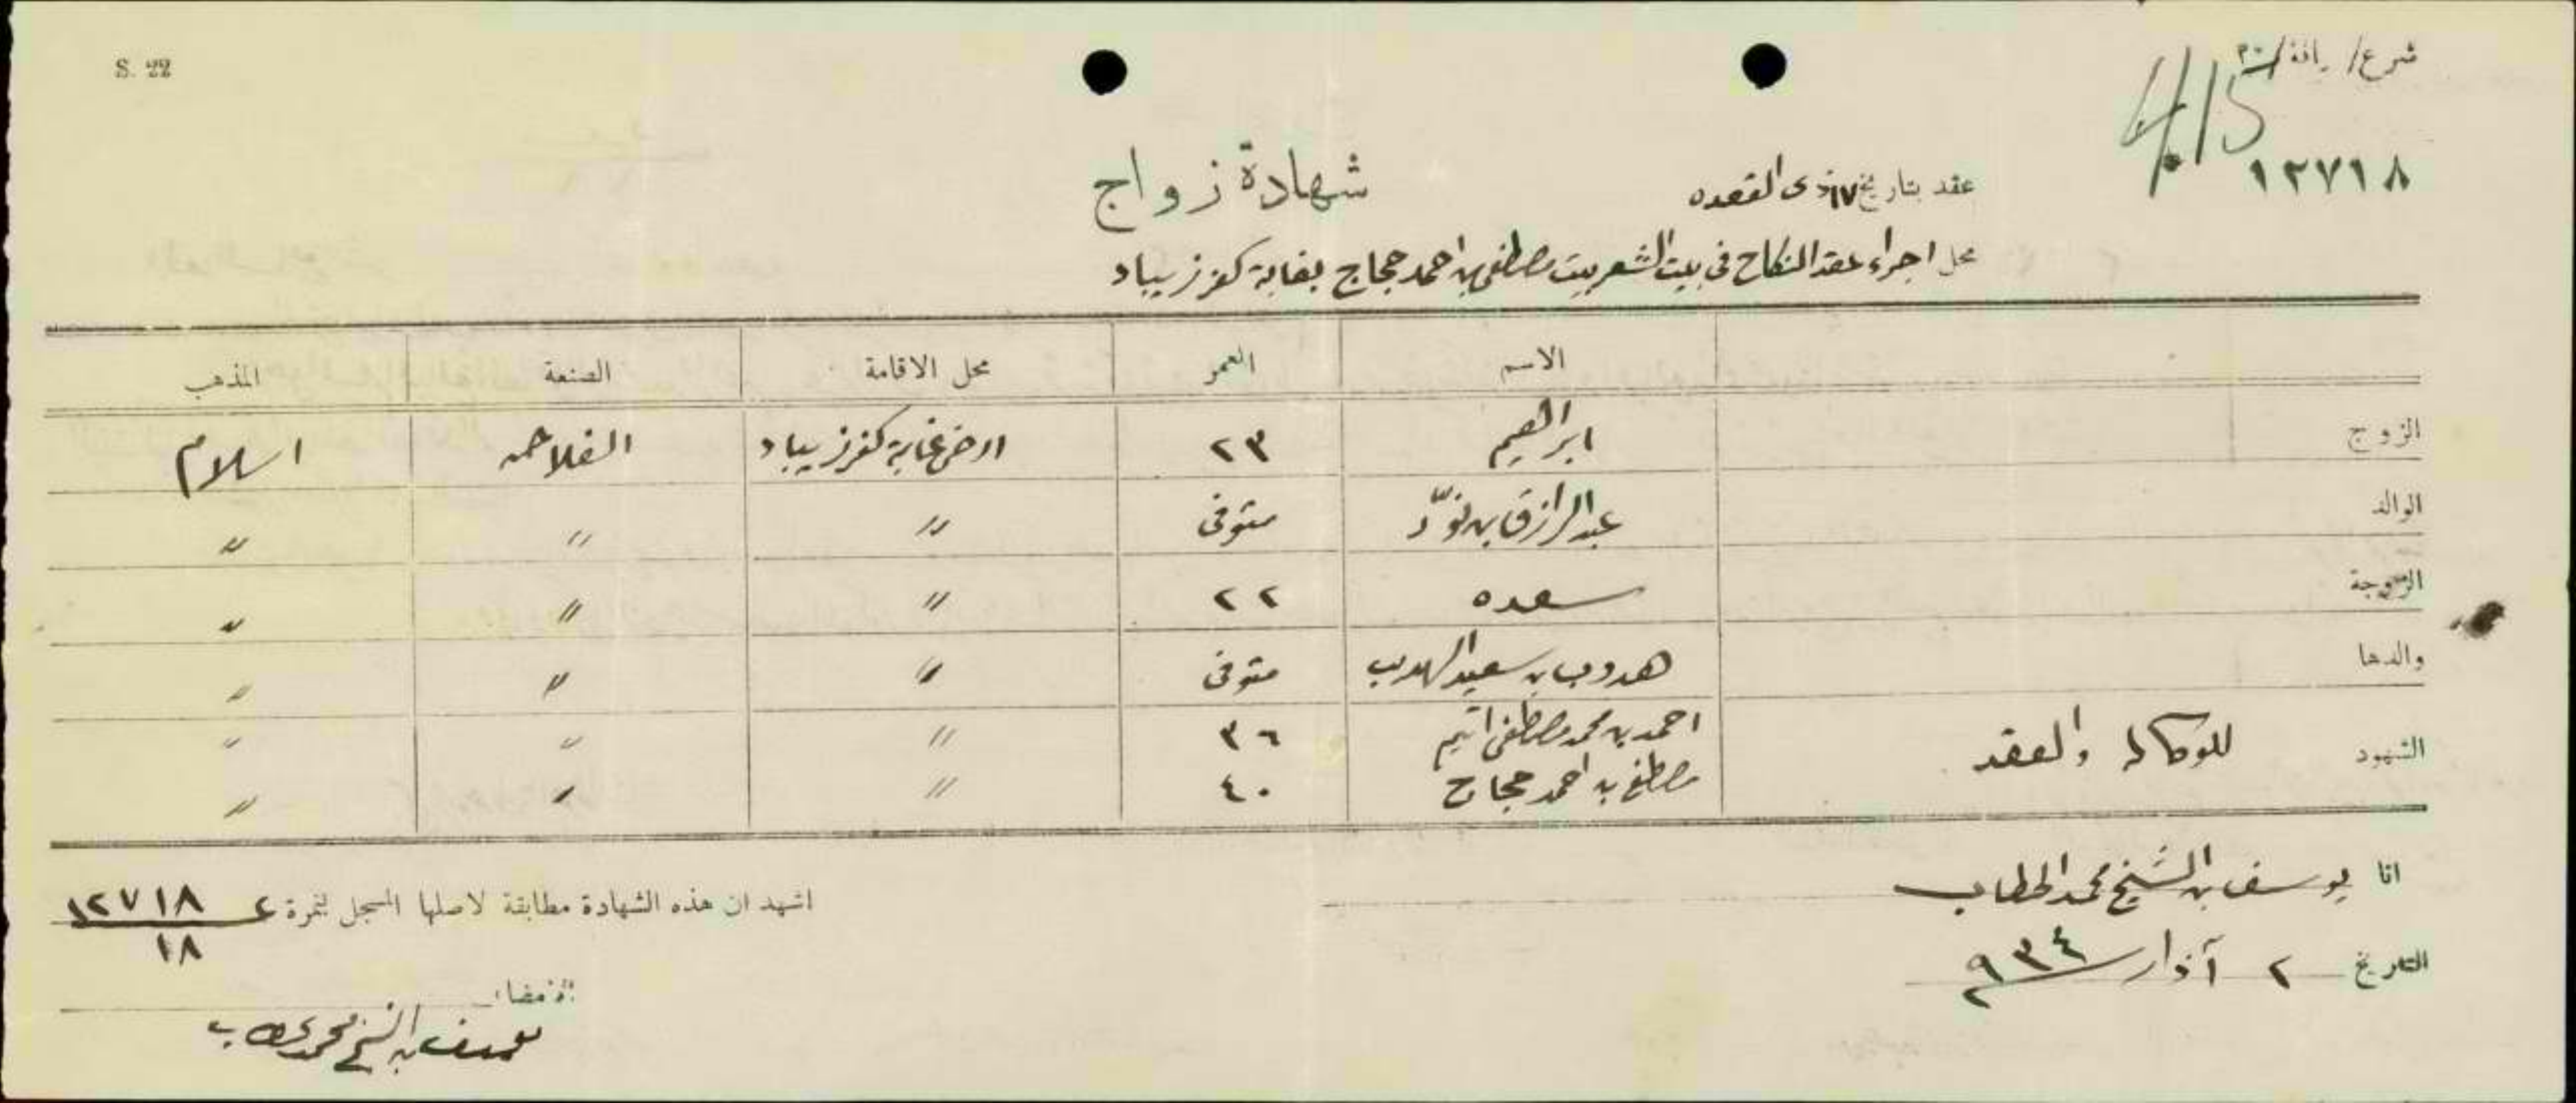 S. 22
شرع/ يافة/٢٠
4/15
١٢٧١٨
شهادة زواج
عقد بتاريخ ١٧ ذى القعده
محل اجراء عقد النكاح فى بيت الشعر بيت مصطفى بن احمد حجاج بغابة كفر زيباد
الاسم العمر محل الاقامة الصنعة المذهب
الزوج ابراهيم ٢٣ ارض غابة كفر زيباد الفلاحه اسلام
الوالد عبد الرازق بن متوفى " " "
الزوجة سعده ٢٢ " " "
والدها هدوب بن سعيد الهدب متوفى " " "
الشهود للوكالة والعقد احمد بن محمد مصطفى ٣٦ " " "
مصطفى بن احمد حجاج ٤٠ " " "
انا يوسف بن الشيخ محمد الحطاب
اشهد ان هذه الشهادة مطابقة لاصلها المسجل بنمرة ١٢٧١٨
١٨
التاريخ ٢ آذار ٩٣٤
الامضاء
يوسف بن الشيخ محمد الحطاب